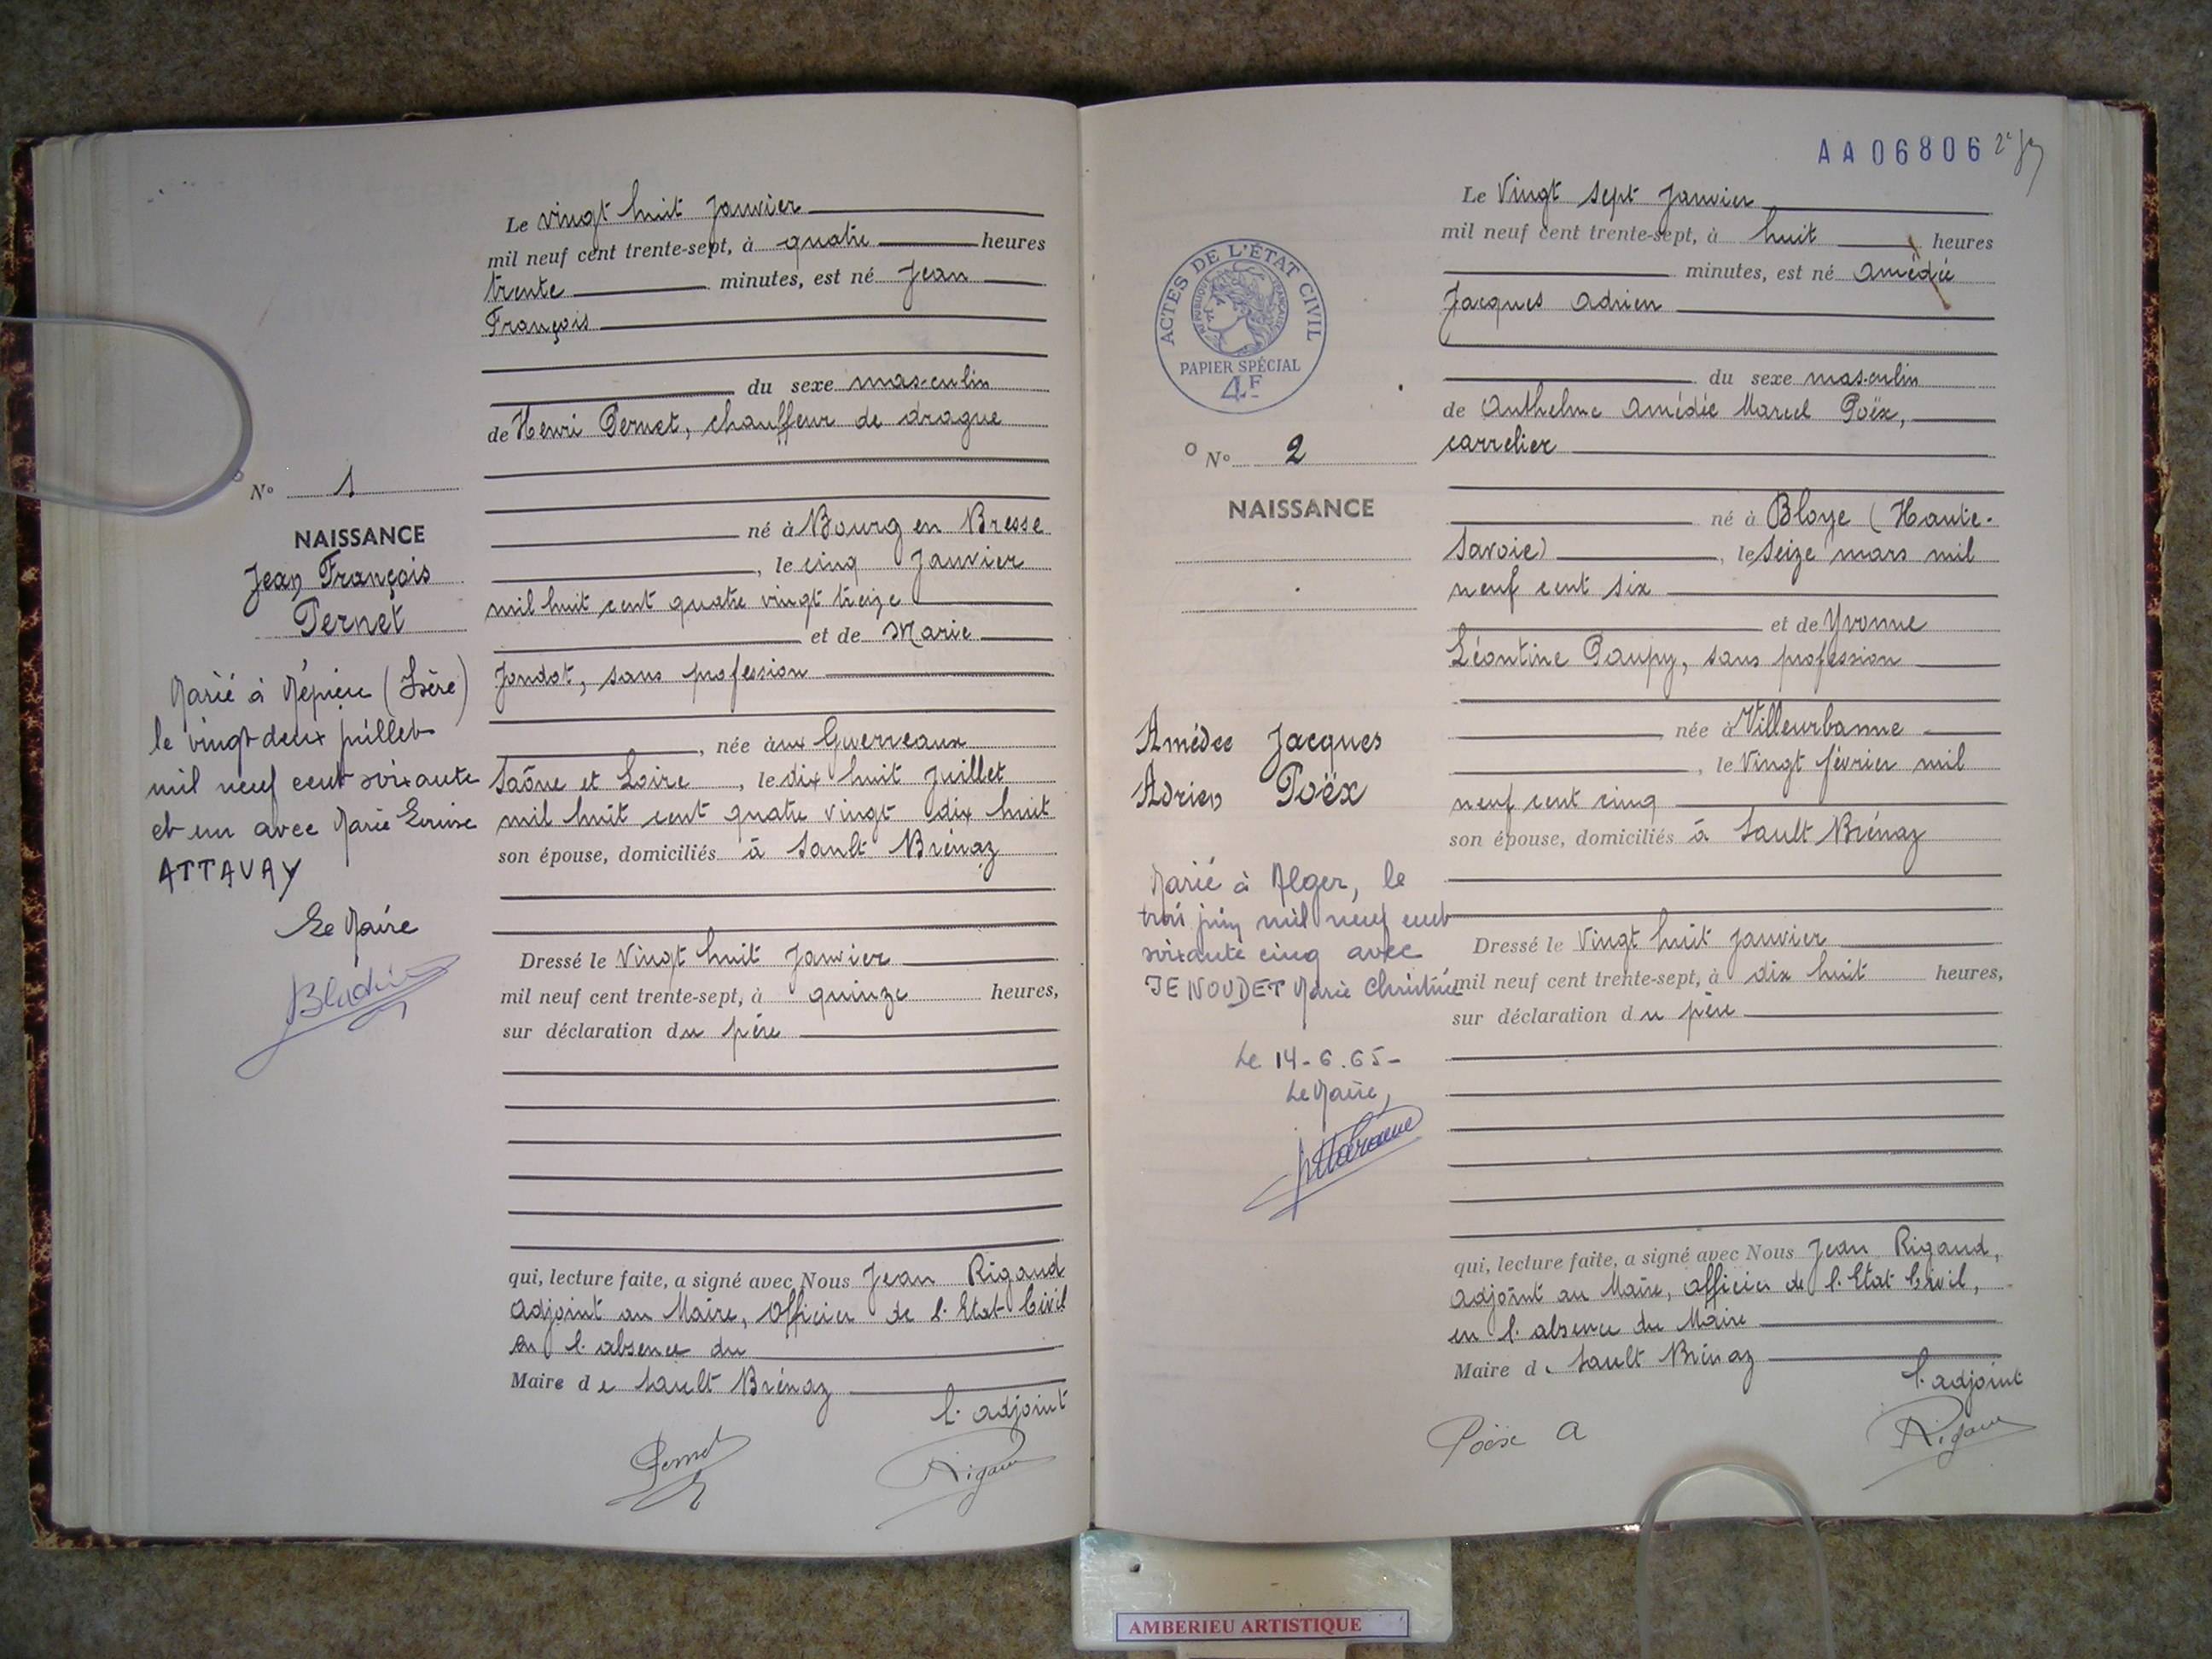 Le vingt huit Janvier
mil neuf cent trente-sept, à quatre heures
trente minutes, est né Jean
François
du sexe masculin
de Henri Pernet, chauffeur de drague
né à Bourg en Bresse
, le cinq Janvier
mil huit cent quatre vingt treize
et de Marie
Jondot, sans profession
, née aux Guerreaux
Saône et Loire, le dix huit Juillet
mil huit cent quatre vingt dix huit
son épouse, domiciliés à Sault Brénaz
Dressé le Vingt huit Janvier
mil neuf cent trente-sept, à quinze heures,
sur déclaration du père
qui, lecture faite, a signé avec Nous Jean Rigaud
Adjoint au Maire, Officier de l'Etat-Civil
en l'absence du
Maire de Sault Brénaz
l'adjoint
Pernet
Rigaud
N° 1
NAISSANCE
Jean François
Pernet
Marié à Vépierre (Isère)
le vingt deux juillet
mil neuf cent soixante
et un avec Marie Louise
ATTAVAY
Le Maire
AA06806
Le Vingt sept Janvier
mil neuf cent trente-sept, à huit heures
minutes, est né Amédée
Jacques Adrien
du sexe masculin
de Anthelme Amédée Marcel Poëx,
carrelier
né à Bloye (Haute-
Savoie), le seize mars mil
neuf cent six
et de Yvonne
Léontine Paupy, sans profession
née à Villeurbanne
, le Vingt février mil
neuf cent cinq
son épouse, domiciliés à Sault Brénaz
Dressé le Vingt huit janvier
mil neuf cent trente-sept, à dix huit heures,
sur déclaration du père
qui, lecture faite, a signé avec Nous Jean Rigaud,
Adjoint au Maire, Officier de l'Etat Civil,
en l'absence du Maire
Maire de Sault Brénaz
l'adjoint
Poëx A
Rigaud
ACTES DE L'ÉTAT CIVIL
RÉPUBLIQUE FRANÇAISE
PAPIER SPÉCIAL
4F
N° 2
NAISSANCE
Amédée Jacques
Adrien Poëx
Marié à Alger, le
trois juin mil neuf cent
soixante cinq avec
JENOUDET Marie Christine
Le 14-6.65-
Le Maire,
AMBERIEU ARTISTIQUE